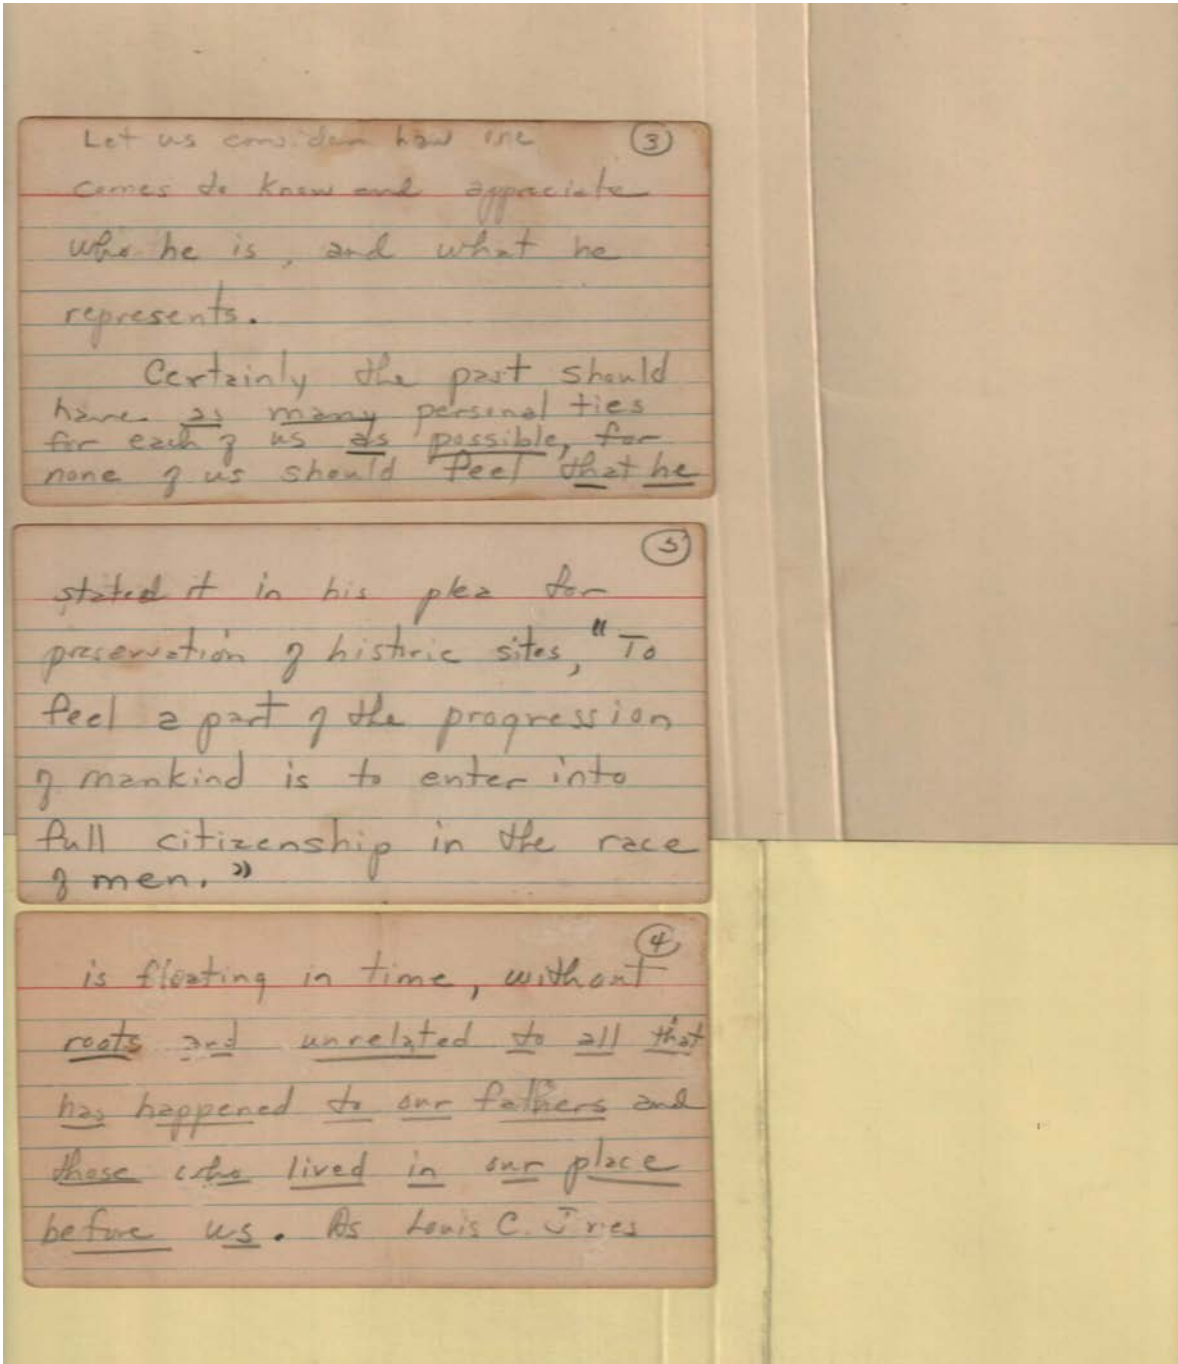 Let us consider how one
③
comes to know and appreciate
who he is, and what he
represents.
Certainly the past should
have as many personal ties
for each of us as possible, for
none of us should feel that he
⑤
stated it in his plea for
preservation of histiric sites, "To
feel a part of the progression
of mankind is to enter into
full citizenship in the race
of men."
④
is floating in time, without
roots and unrelated to all that
has happened to our fathers and
those who lived in our place
before us. As Louis C. Jones